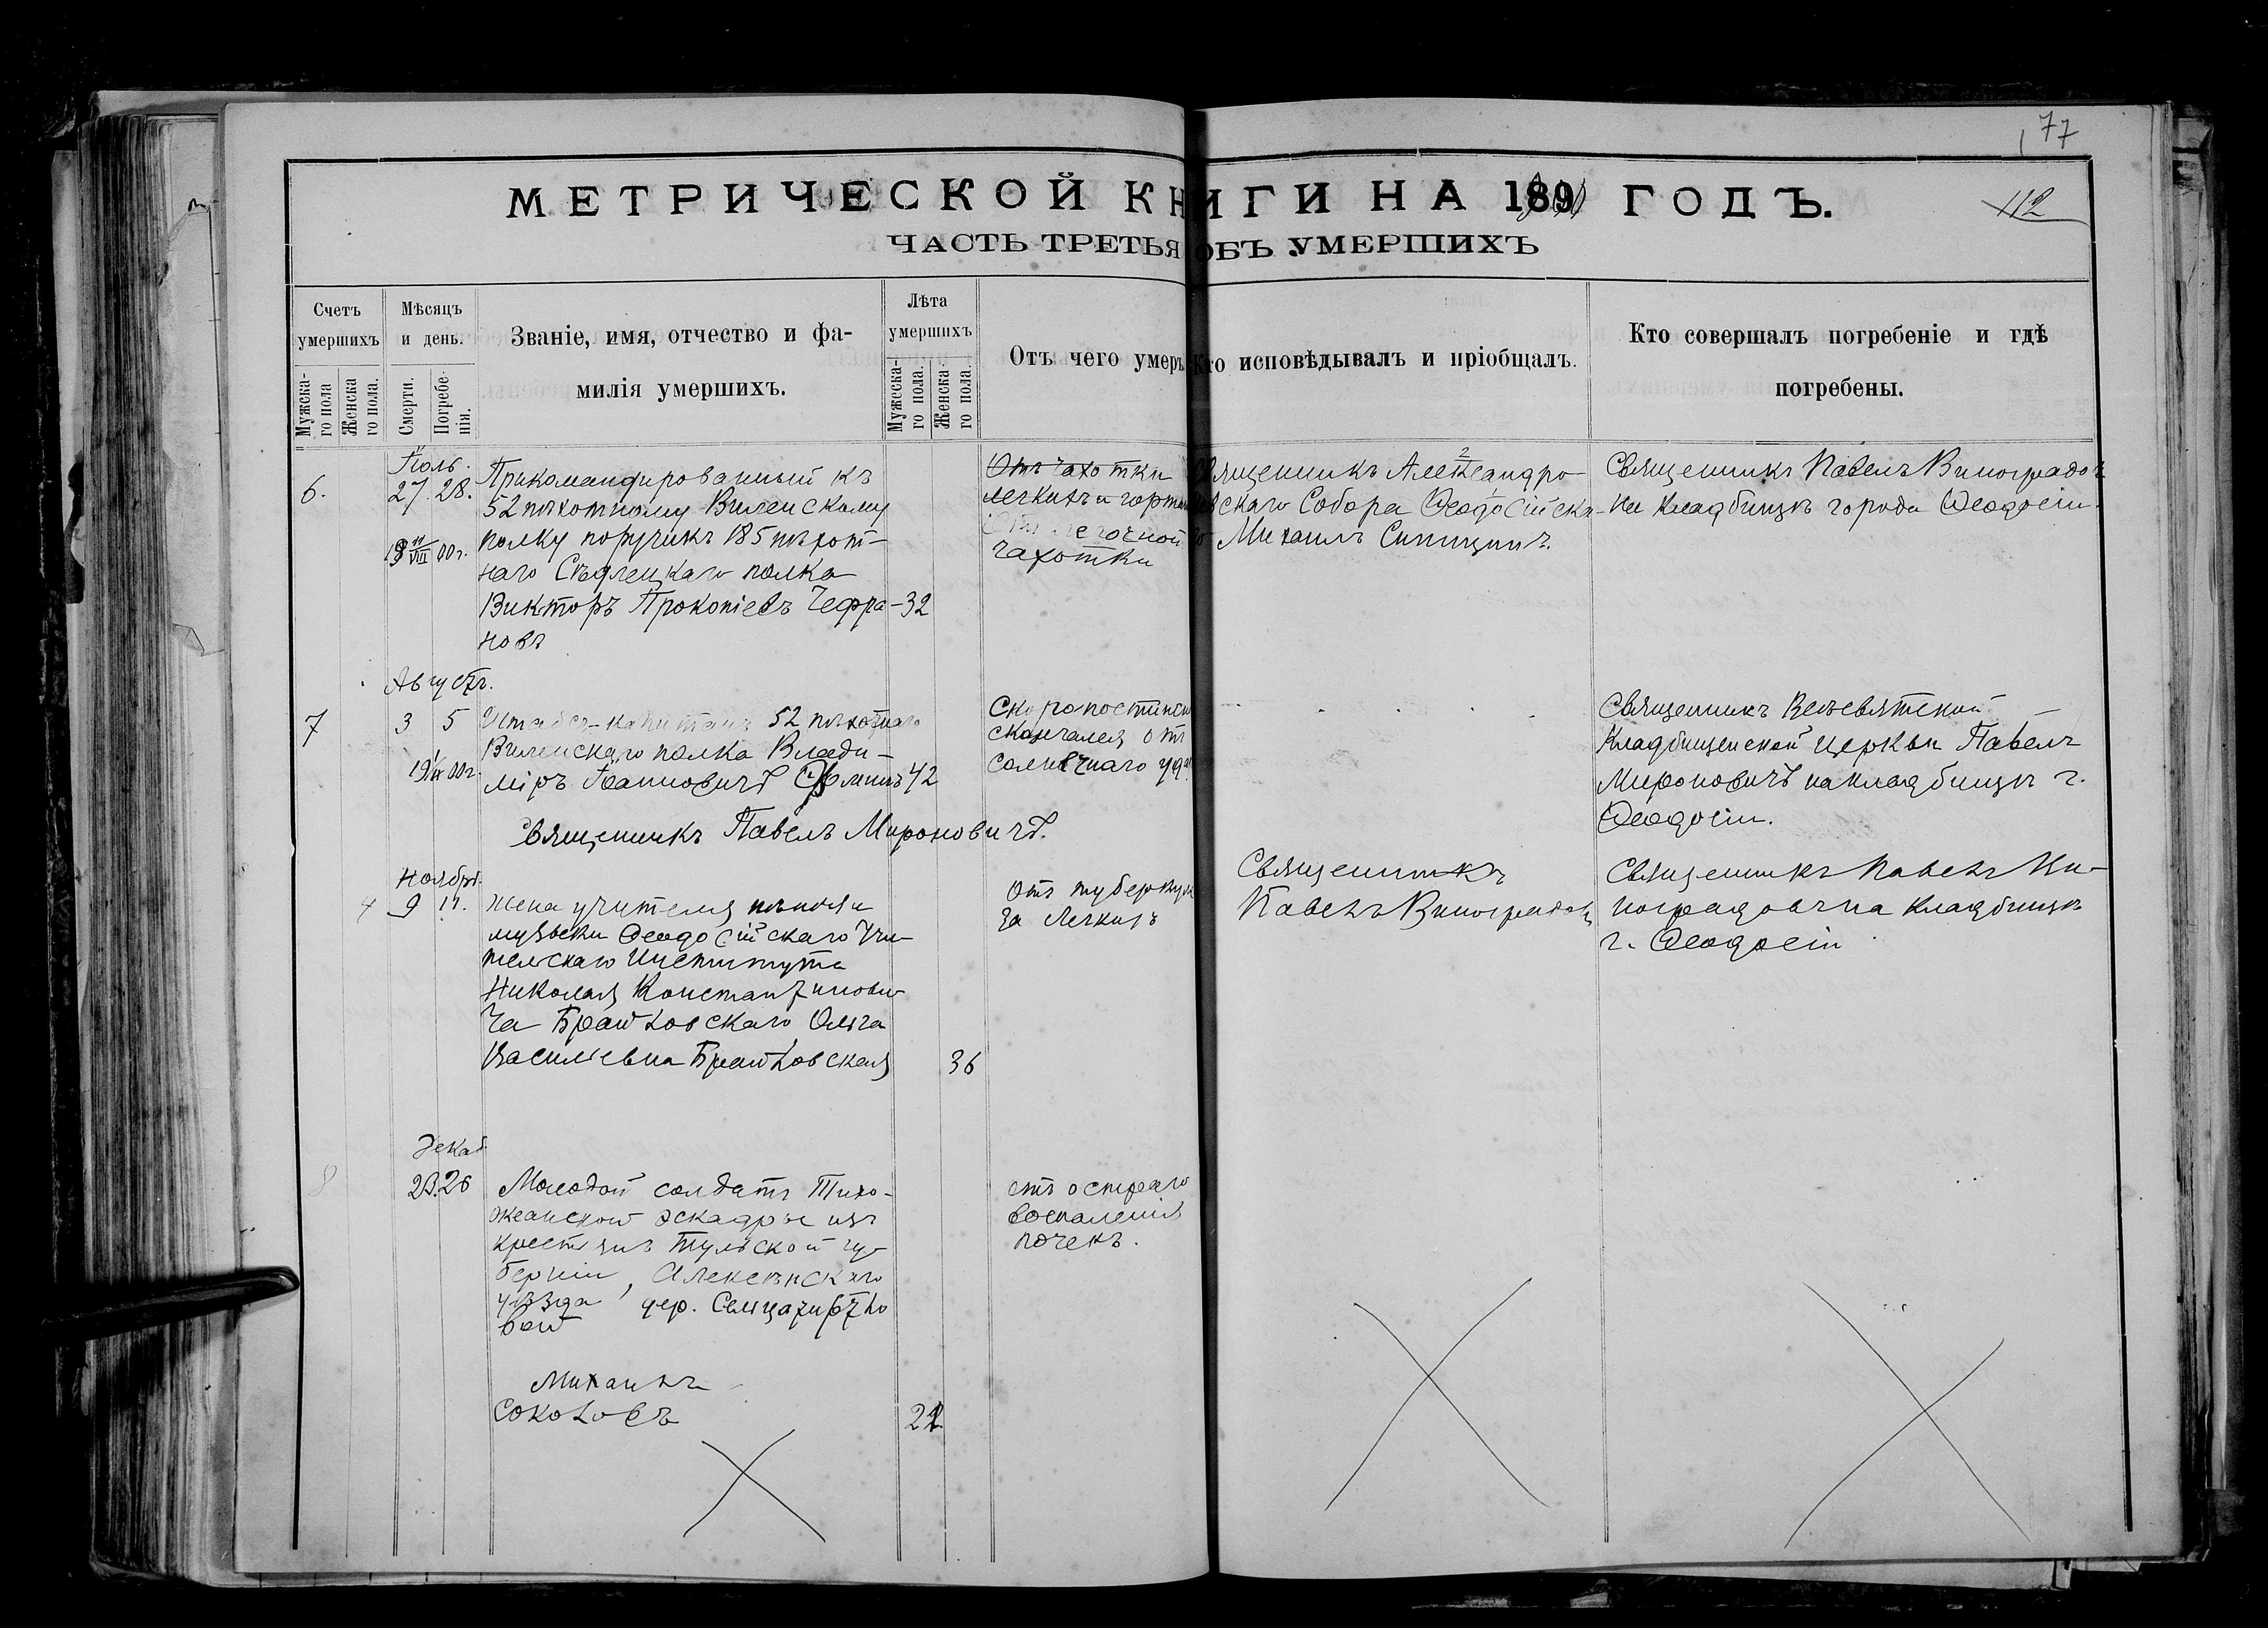 77
МЕТРИЧЕСКОЙ КНИГИ НА 189 ГОДЪ.
112
ЧАСТЬ ТРЕТЬЯ ОБЪ УМЕРШИХЪ
Счетъ умершихъ
Мужска-го пола
Женска го пола.
Мѣсяцъ и день.
Смерти.
Погребе-нія.
Званіе, имя, отчество и фа-
милія умершихъ.
Лѣта умершихъ
Мужеска-го пола.
Женска-го пола.
Отъ чего умеръ
Кто исповѣдывалъ и пріобщалъ.
Кто совершалъ погребеніе и гдѣ
погребены.
6.
Іюль.
27. 28.
19 11/VIII 00 г.
Прикомандированный къ
52 пѣхотному Виленскому
полку поручикъ 185 пѣхот-
наго Сѣдлецкаго полка
Викторъ Прокопіевъ Чефра-
новъ
32
Отъ чахотки
легкихъ и горта
Отъ легочной
чахотки
Священникъ Александро-
вскаго Собора Ѳеодосійска-
го Михаилъ Синицинъ.
Священникъ Павелъ Виноградовъ
на кладбищѣ города Ѳеодосіи.
Августъ.
7
3 5
19 1/IX 00 г.
Штабсъ-капитанъ 52 пѣхотнаго
Виленскаго полка Влади-
міръ Іоанновичъ
42
Священникъ Павелъ Мироновичъ.
Скоропостижно
скончался отъ
солнечнаго уда
Священникъ Всесвятской
Кладбищенской церкви Павелъ
Мироновичъ на кладбищѣ г.
Ѳеодосіи.
Ноябрь.
4
9 11.
Жена учителя пѣнія и
музыки Ѳеодосійскаго Учи-
тельскаго Института
Николая Константинови-
ча Брайловскаго Ольга
Васильевна Брайловская
36
Отъ туберкуле
за легкихъ
Священникъ
Павелъ Виноградовъ
Священникъ Павелъ Ви-
ноградовъ на кладбищѣ
г. Ѳеодосіи
Декаб.
8
23. 26
Молодой солдатъ Тихо-
океанской эскадры изъ
крестьянъ Тульской гу-
берніи, Алексинскаго
уѣзда, дер.
вой
Михаилъ
Соколовъ
22
отъ остраго
воспаленія
почекъ.